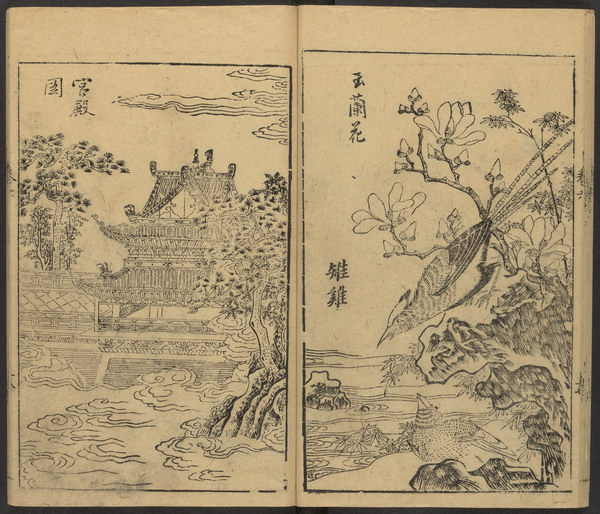 卷六
玉蘭花
雉雞
宮殿
圖